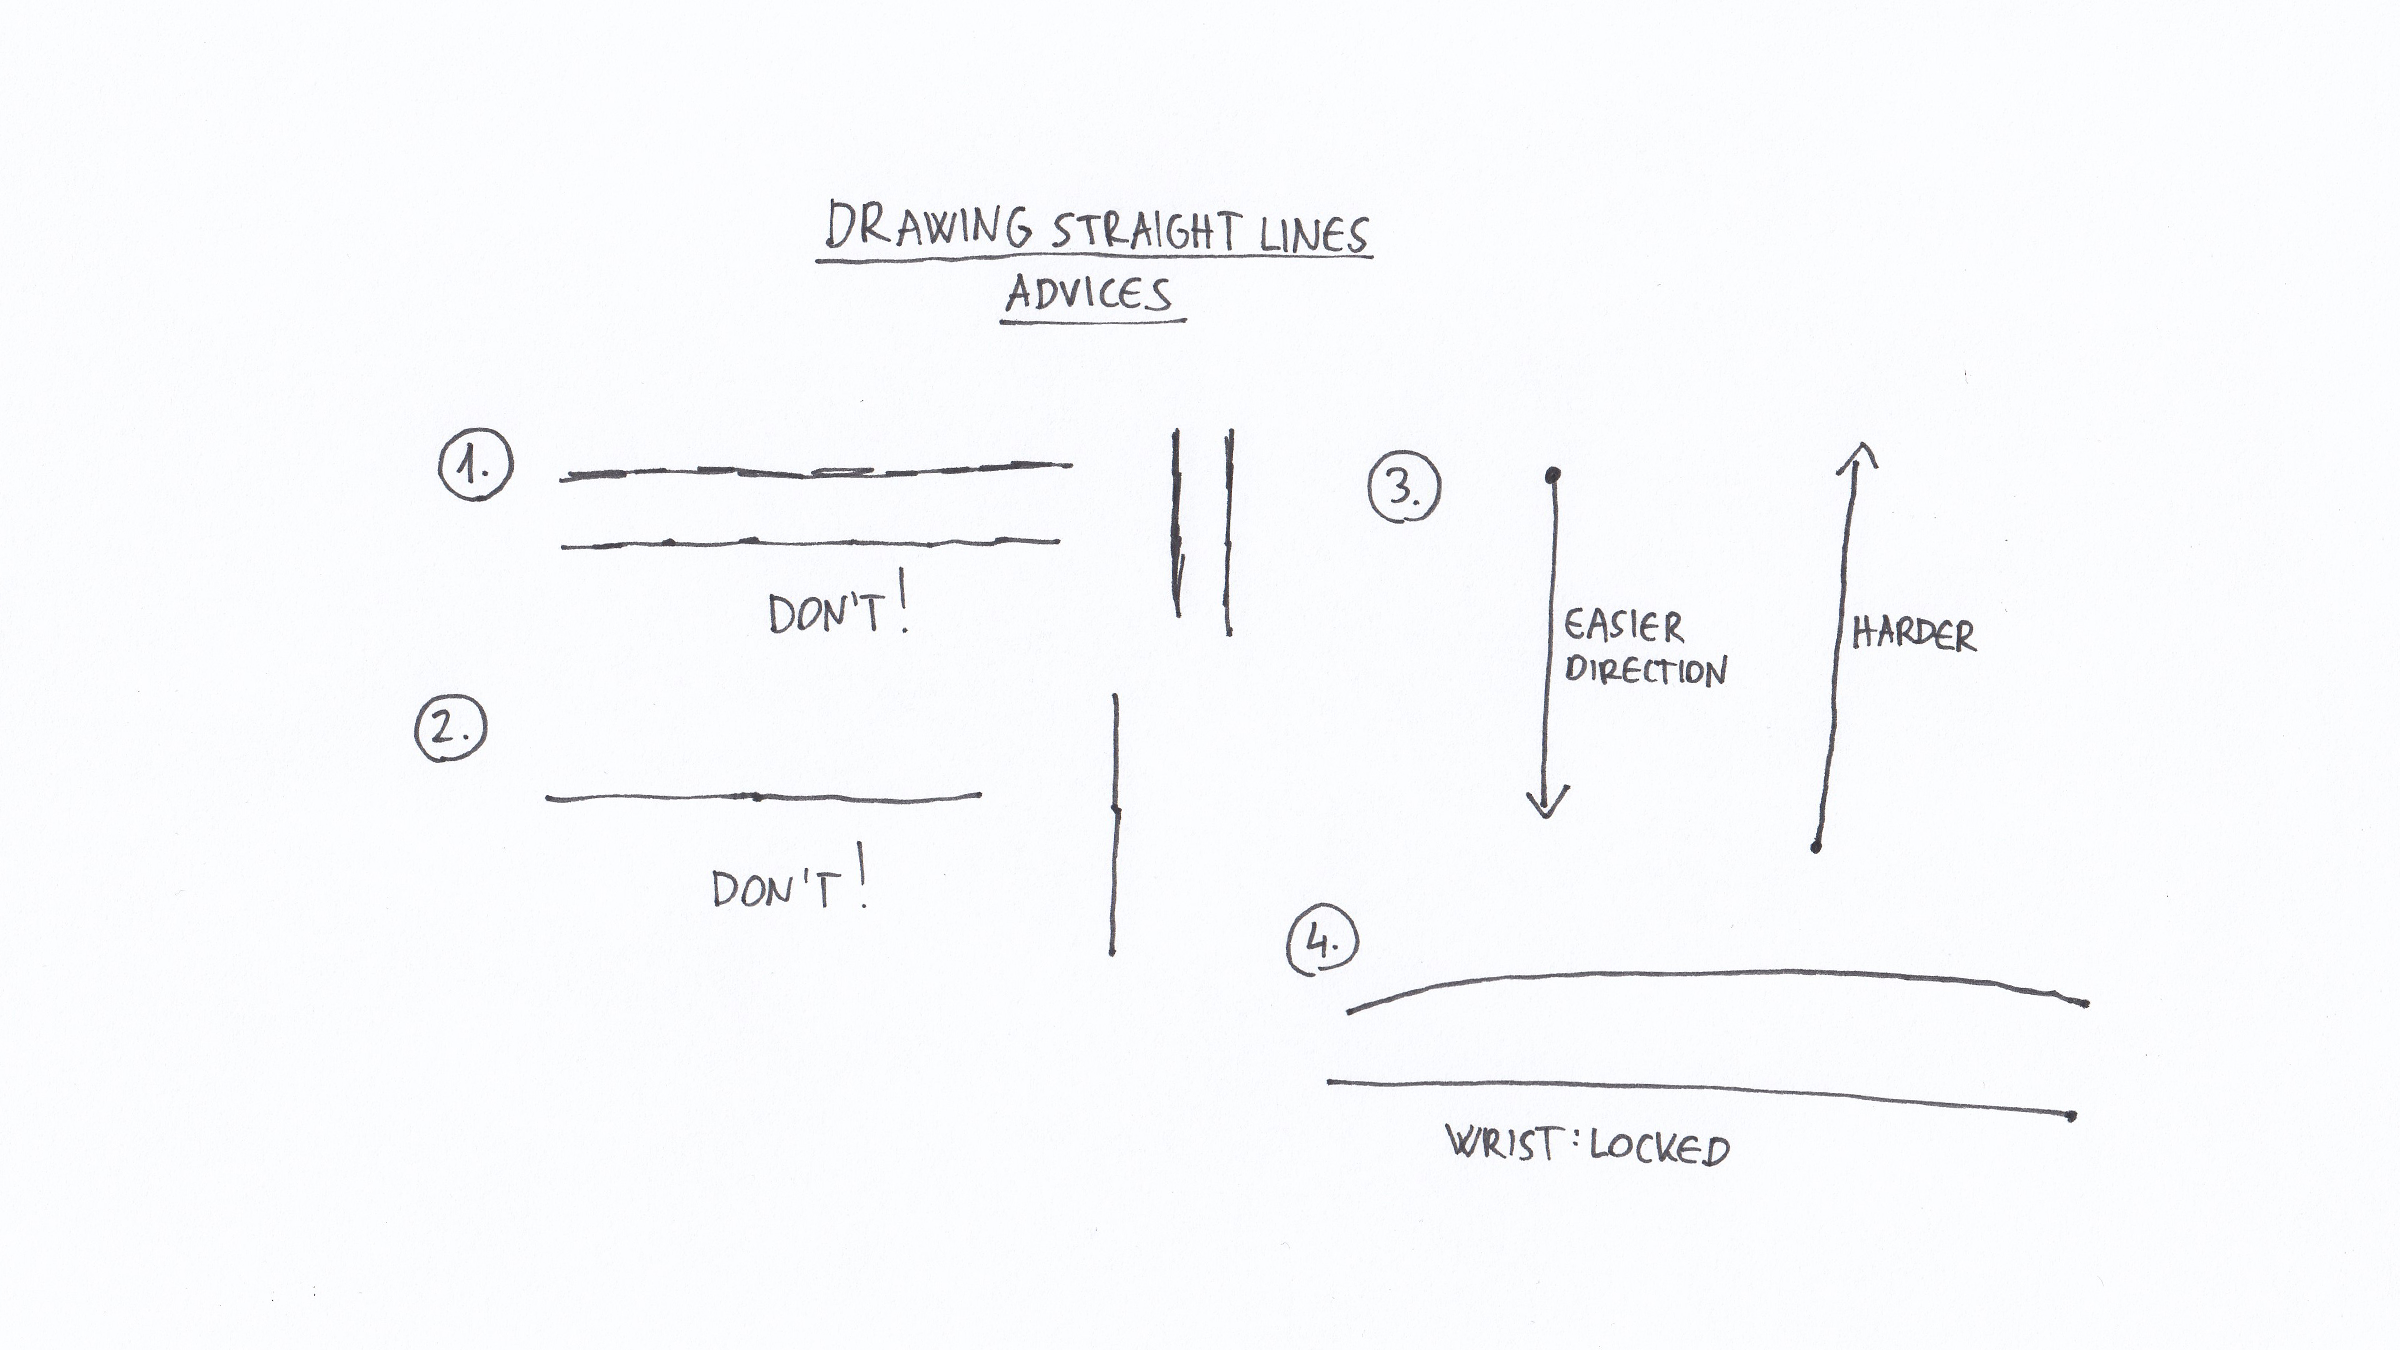 DRAWING STRAIGHT LINES
ADVICES
1.
DON'T!
2.
DON'T!
3.
EASIER
DIRECTION
HARDER
4.
WRIST: LOCKED